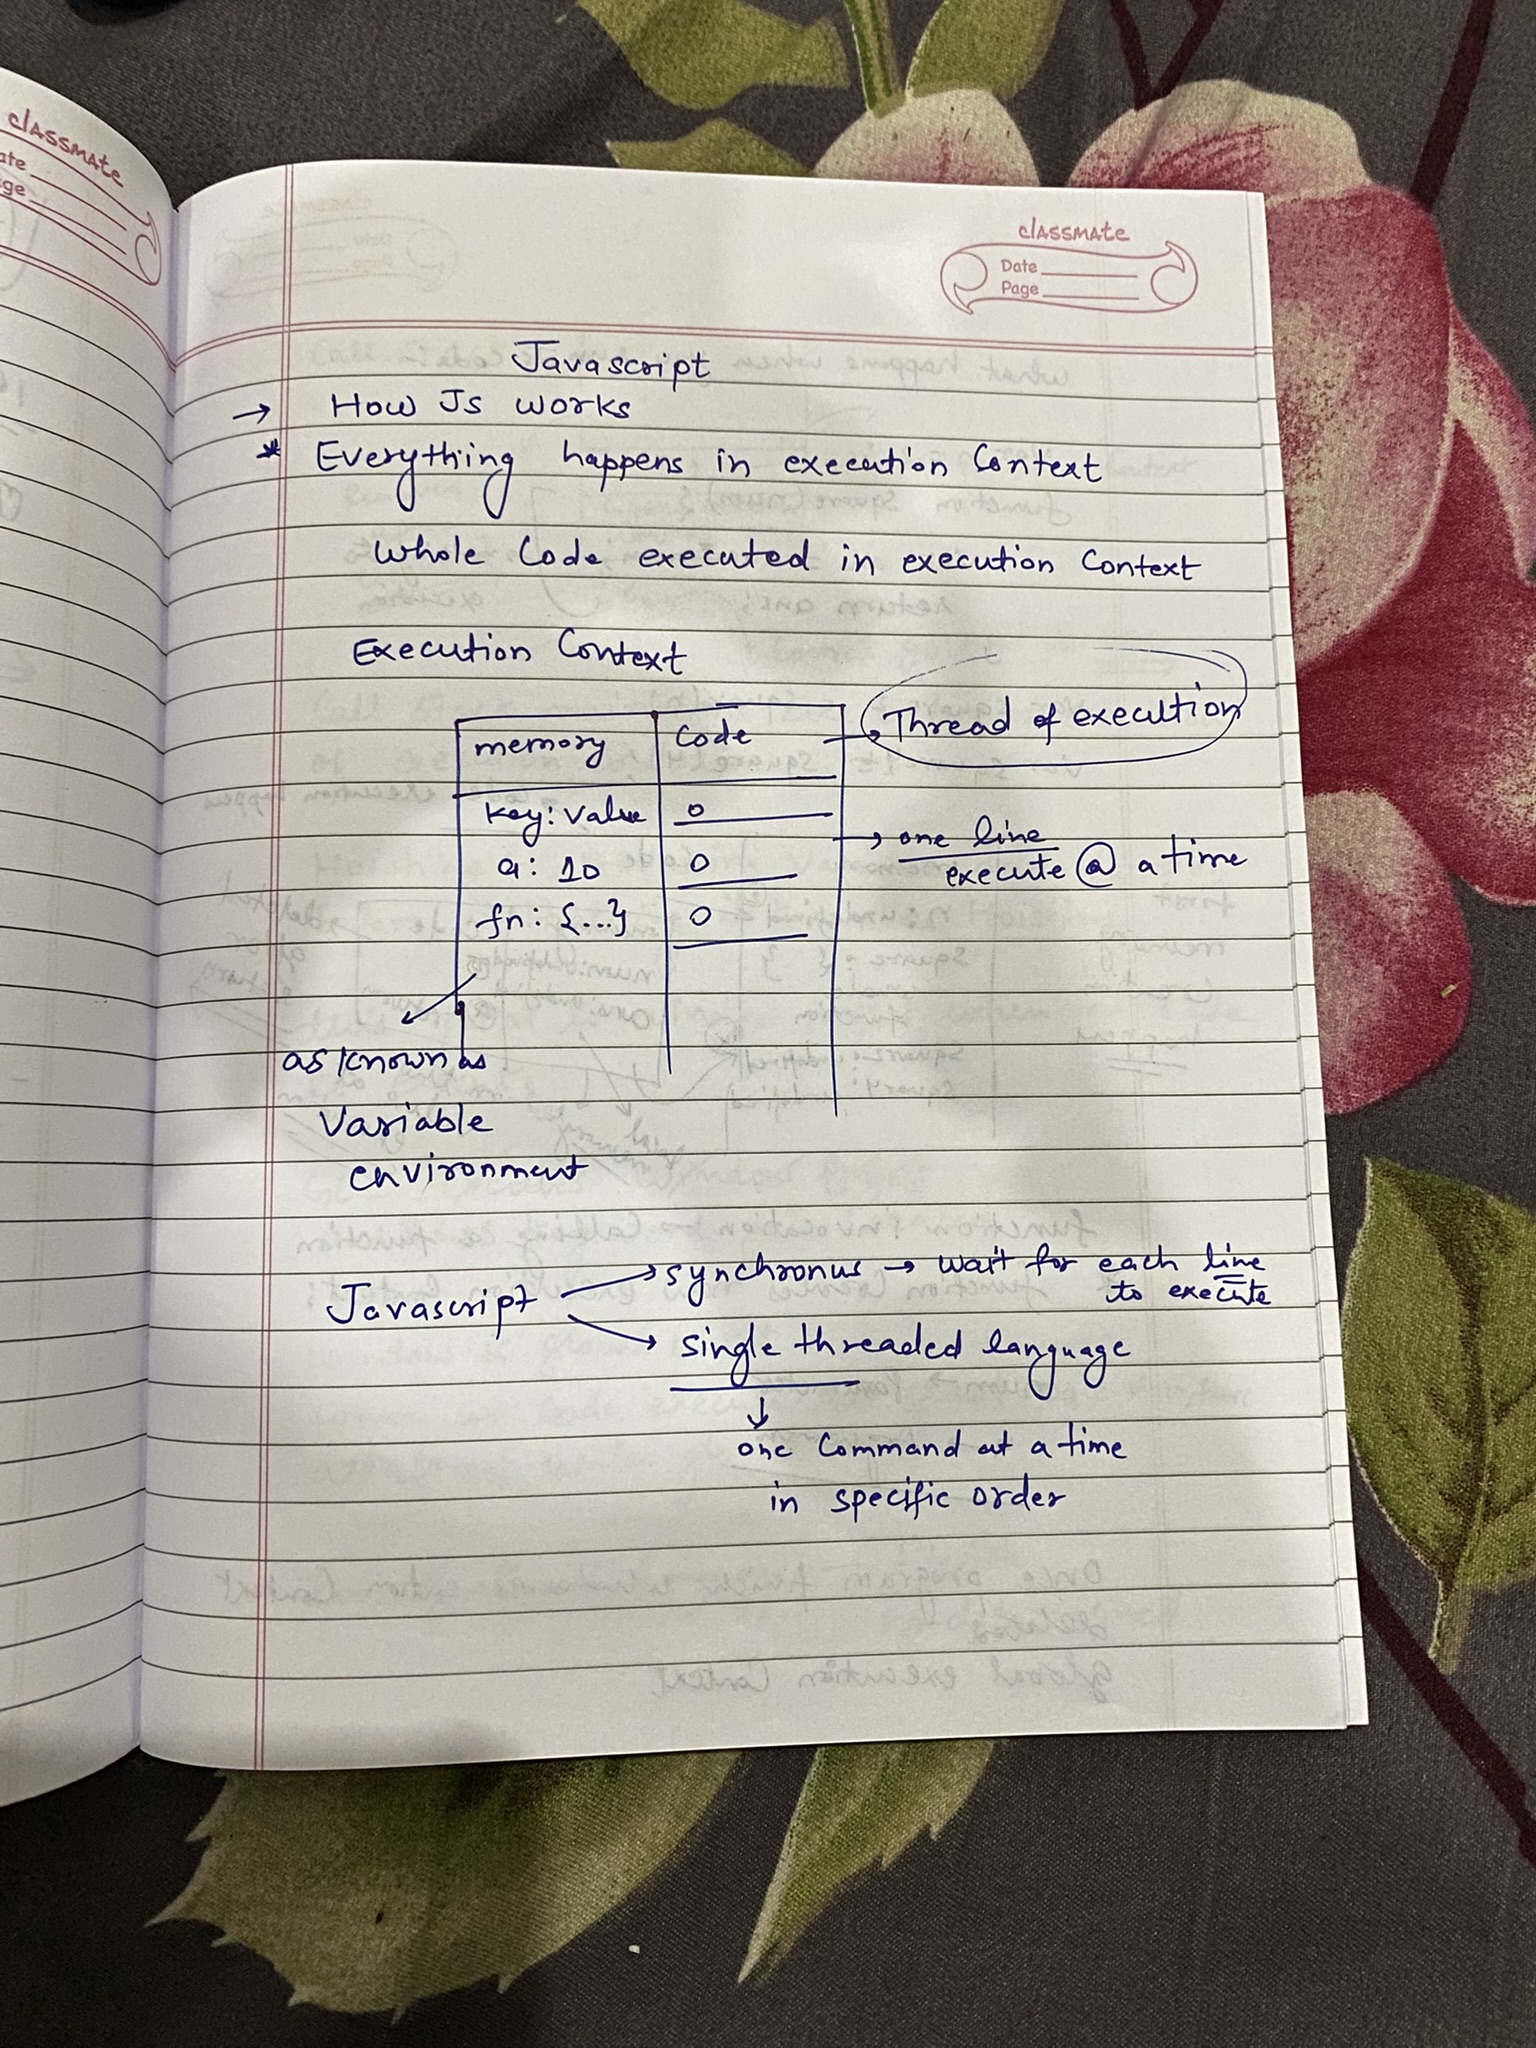 classmate
ate
ge
classmate
Date
Page
Javascript
→ How Js works
* Everything happens in execution Context
Whole Code executed in execution Context
Execution Context
memory Code → Thread of execution
key: value 0
→ one line
a: 10 0
execute @ a time
fn: {...} 0
as known as
Variable
environment
Javascript → synchronus → wait for each line
to execute
→ single threaded language
↓
one Command at a time
in specific order